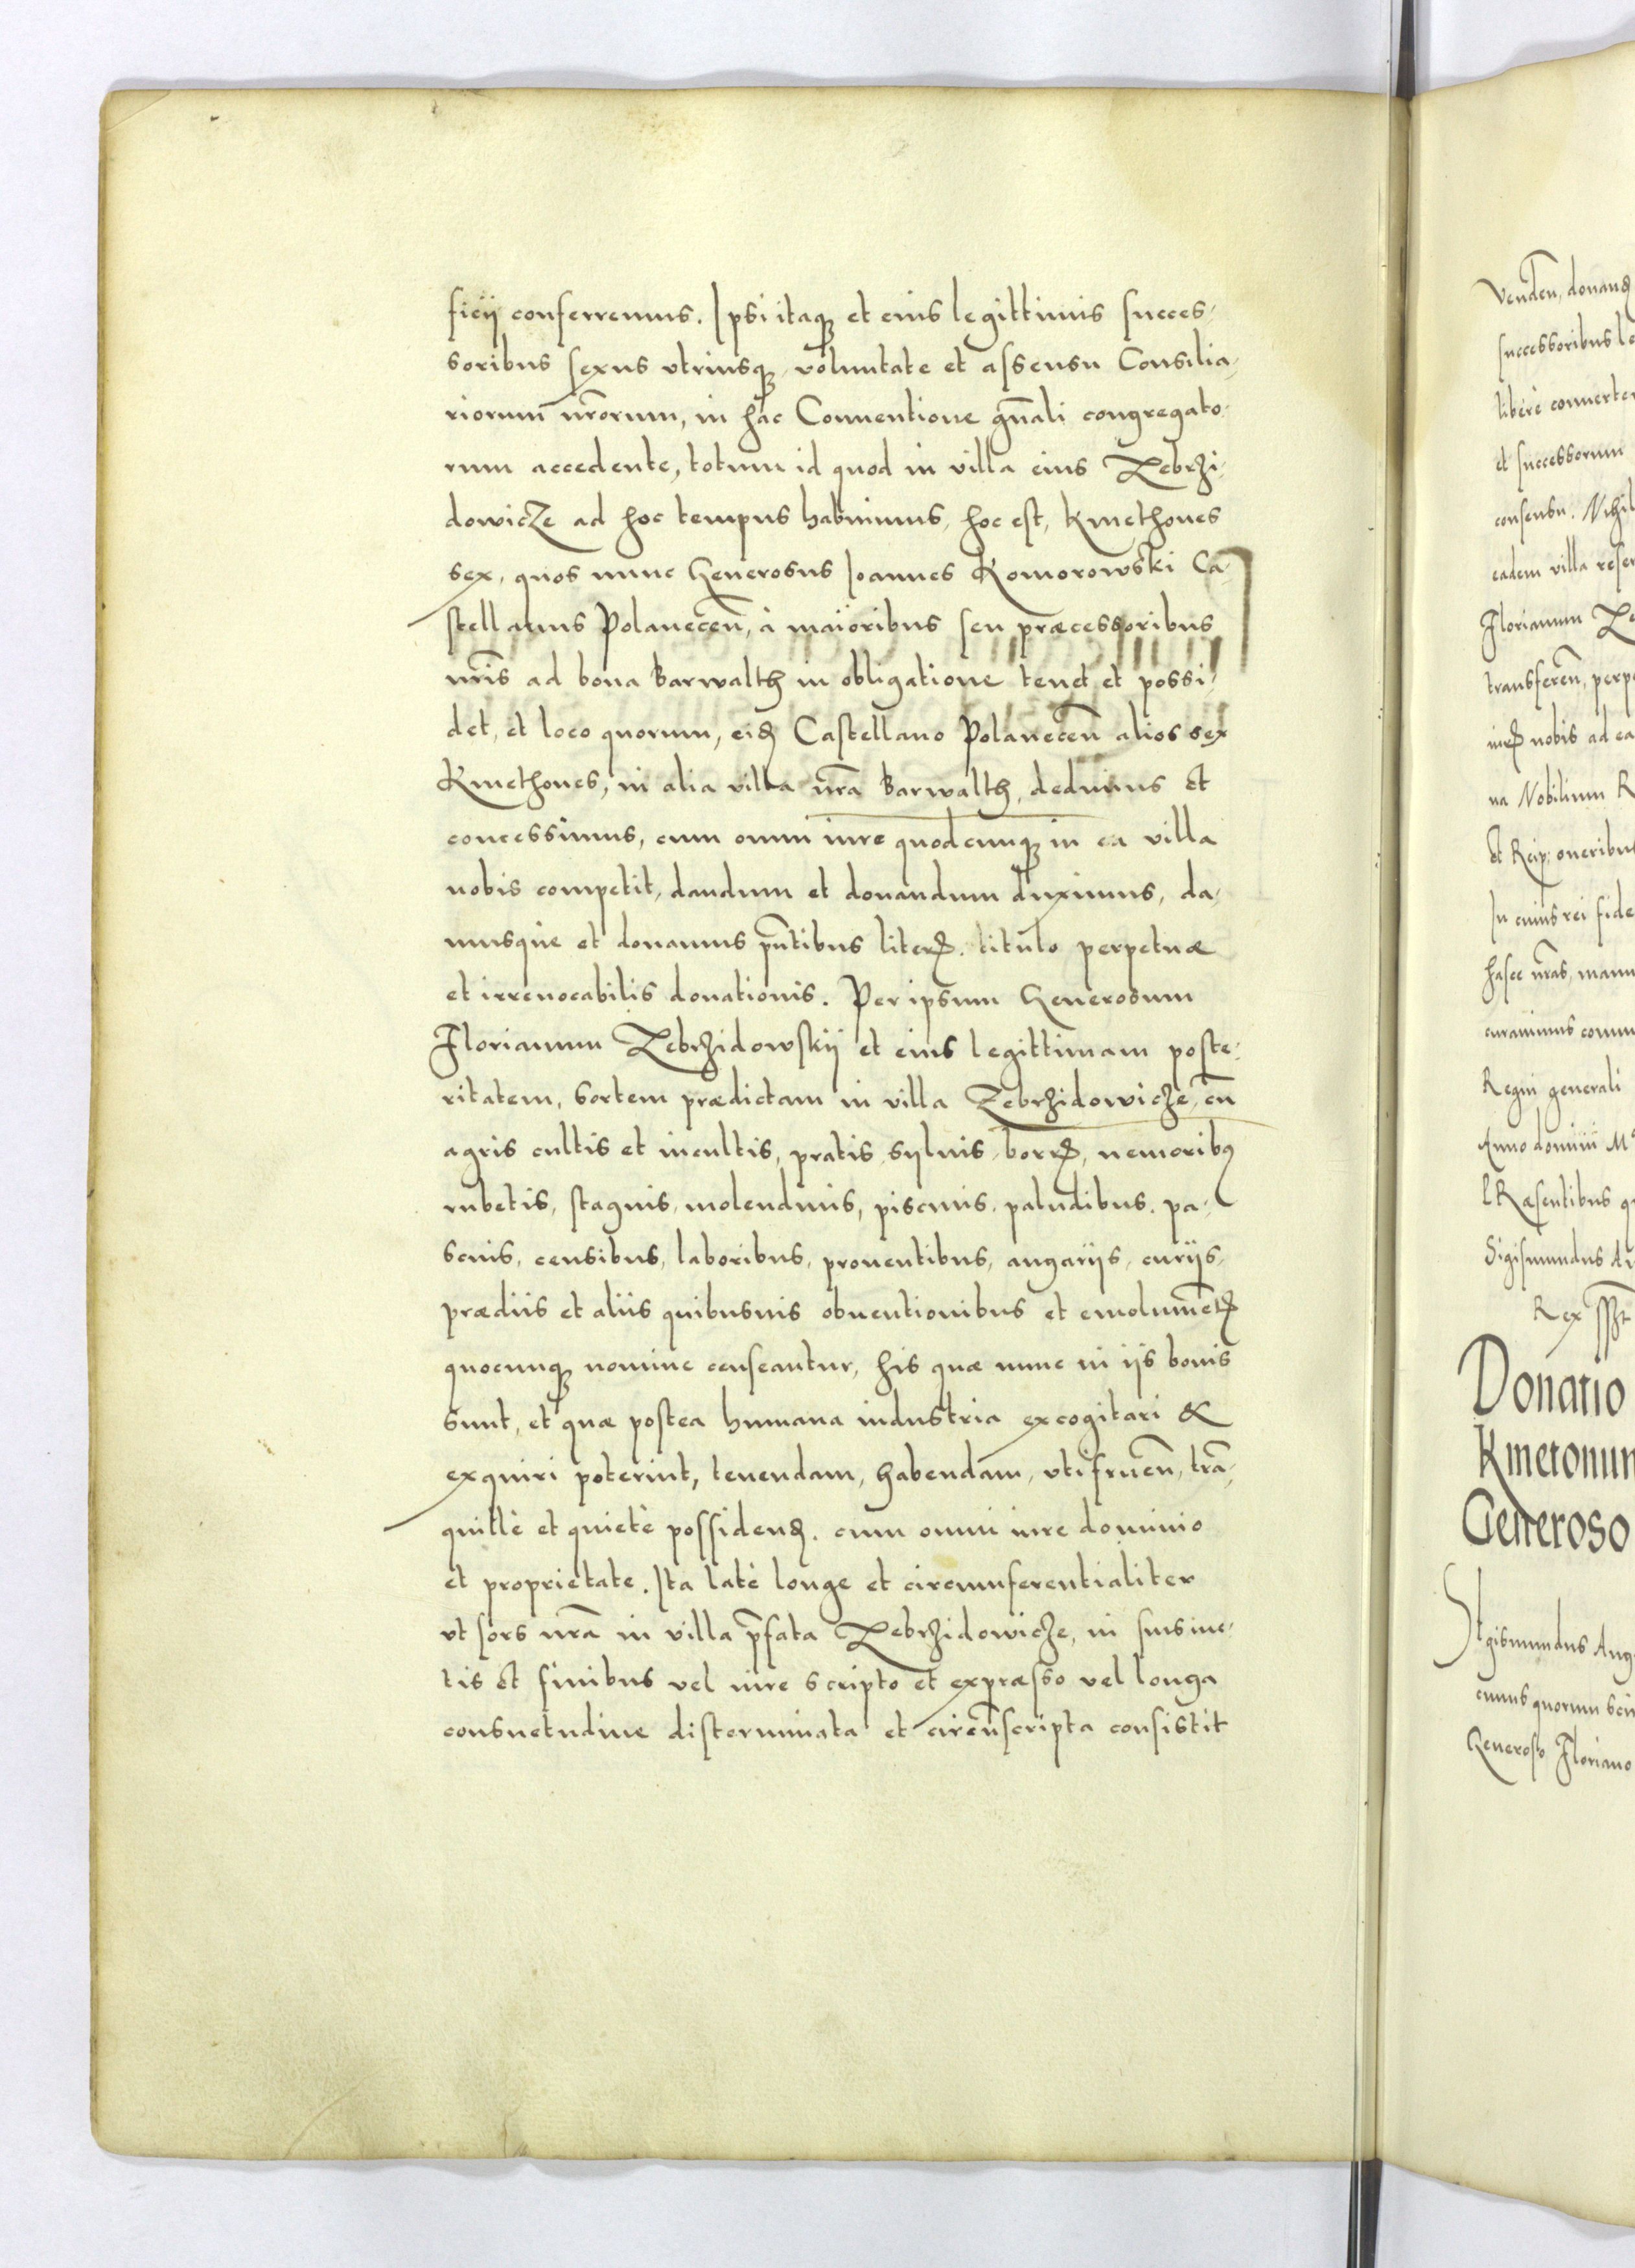 ficij conferremus. Ipsi itaq; et eius legittimis succes-
soribus sexus vtriusq; voluntate et assensu Consilia-
riorum nrorum, in hac Conuentione gnali congregato-
rum accedente, totum id quod in villa eius Zebrzi-
dowicze ad hoc tempus habuimus, hoc est, Kmethones
sex, quos nunc Generosus Ioannes Komorowski Ca-
stellanus Polanecen, à maioribus seu præcessoribus
nris ad bona Barwalth in obligatione tenet et possi-
det, et loco quorum, eid Castellano Polanecen alios sex
Kmethones, in alia villa nra Barwalth, dedimus et
concessimus, cum omni iure quodcunq; in ea villa
nobis competit, dandum et donandum duximus, da-
musque et donamus pntibus liter. titulo perpetuæ
et irreuocabilis donationis. Per ipsum Generosum
Florianum Zebrzidowskij et eius legittimam poste-
ritatem, sortem prædictam in villa Zebrzidowicze, cu
agris cultis et incultis, pratis, syluis, borr, nemorib9
rubetis, stagnis, molendinis, piscinis, paludibus, pa-
scuis, censibus, laboribus, prouentibus, angarijs, curijs,
prædiis et aliis quibusuis obuentionibus et emolument
quocunq; nomine censeantur, his quæ nunc in ijs bonis
sunt, et quæ postea humana industria excogitari &
exquiri poterint, tenendam, habendam, vtifruen, tra-
quillè et quietè possidend. cum omni iure dominio
et proprietate. Ita latè longe et circumferentialiter
vt sors nra in villa pfata Zebrzidowicze, in suis me-
tis et finibus vel iure scripto et expræsso vel longa
consuetudine disterminata et circuscripta consistit
Venden, donand
successoribus le
liberè conuerter
et successorum
consensu. Nihil
eadem villa reser
Florianum Ze
transferen, perp
nobis ad ea
na Nobilium R
et Reip: oneribus
In cuius rei fide
hasce nras, manu
curauimus commu
Regni generali
Anno domini M
PRæsentibus q
Sigismundus Au
Rex sst
Donatio
Kmetonum
Generoso
Sigismundus Aug
cimus quorum
Generoso Floriano